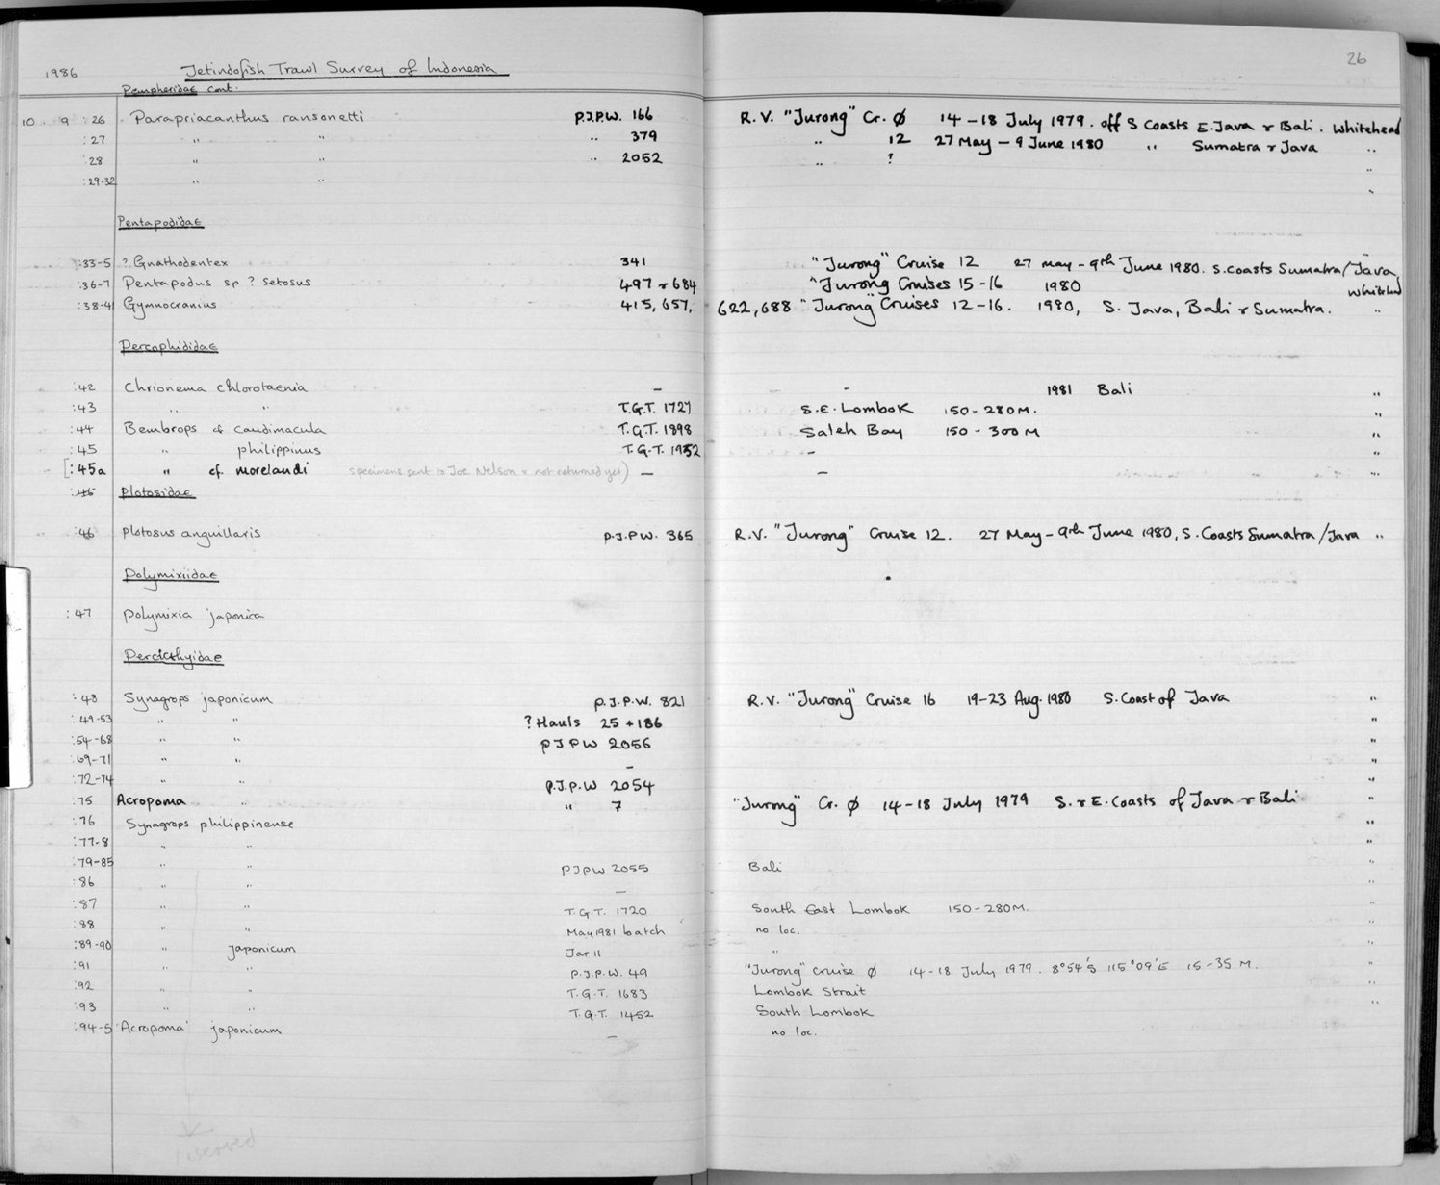 26
1986 Jetindofish Trawl Survey of Indonesia
Pempheridae cont.
10 . 9 :26 Parapriacanthus ransonetti P.J.P.W. 166 R.V. "Jurong" Cr. Ø 14-18 July 1979. off S Coasts E. Java & Bali. Whitehead
:27 " " " 379 " 12 27 May - 9 June 1980 " Sumatra & Java "
:28 " " " 2052 " ? "
:29-32 " " "
Pentapodidae
:33-5 ? Gnathodentex 341 "Jurong" Cruise 12 27 may - 9th June 1980. S. coasts Sumatra/Java,
:36-7 Pentapodus sp ? setosus 497 & 684 "Jurong Cruises 15-16 1980 Whitehead
:38-41 Gymnocranius 415, 657, 622, 688 "Jurong" Cruises 12-16. 1980, S. Java, Bali & Sumatra. "
Percophididae
:42 Chrionema chlorotaenia - - 1981 Bali "
:43 " " T.G.T. 1727 S.E. Lombok 150-280M. "
:44 Bembrops cf caudimacula T.G.T. 1898 Saleh Bay 150-300M "
:45 " philippinus T.G.T. 1952 - "
[:45a " cf. morelandi specimens sent to Joe Nelson & not returned yet) - - "
:46 Plotosidae
:46 Plotosus anguillaris P.J.P.W. 365 R.V. "Jurong" Cruise 12. 27 May - 9th June 1980, S. Coasts Sumatra/Java "
Polymixiidae
:47 Polymixia japonica
Percicthyidae
:48 Synagrops japonicum P.J.P.W. 821 R.V. "Jurong" Cruise 16 19-23 Aug. 1980 S. Coast of Java "
:49-53 " " ? Hauls 25 + 186 "
:54-68 " " PJPW 2056 "
:69-71 " " - "
:72-74 " " P.J.P.W 2054 "
:75 Acropoma " " 7 "Jurong" Cr. Ø 14-18 July 1979 S. & E. Coasts of Java & Bali "
:76 Synagrops philippinense "
:77-8 " " "
:79-85 " " PJPW 2055 Bali "
:86 " " - "
:87 " " T.G.T. 1720 South East Lombok 150-280M. "
:88 " " May 1981 batch no loc. "
:89-90 " japonicum Jar 11 " "
:91 " " P.J.P.W. 49 "Jurong" Cruise Ø 14-18 July 1979. 8°54'S 115°09'E 15-35 M. "
:92 " " T.G.T. 1683 Lombok Strait "
:93 " " T.G.T. 1452 South Lombok "
:94-5 'Acropoma' japonicum - no loc.